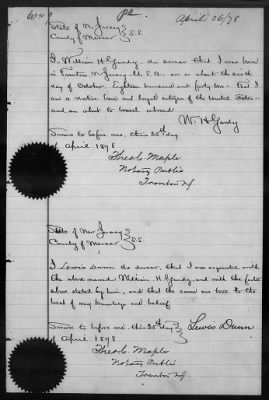 6084 Pd. April 26/78
State of N. Jersey }
County of Mercer } S.S.
I, William H Gandy, do swear that I was born
in Trenton N. Jersey U.S.A. on or about the
day of October, Eighteen hundred and forty two - That I
am a native born and loyal citizen of the United States -
and am about to travel abroad
W. H Gandy
Sworn to before me, this 25th day
of April 1878
Theo. C. Maple
Notary Public
Trenton N.J.
State of New Jersey }
County of Mercer } S.S.
I Lewis Dunn do swear, that I am acquainted with
the above named William H Gandy, and with the facts
above stated by him, and that the same are true to the
best of my knowledge and belief
Sworn to before me, this 25th day } Lewis Dunn
of April 1878
Theo. C. Maple
Notary Public
Trenton N.J.